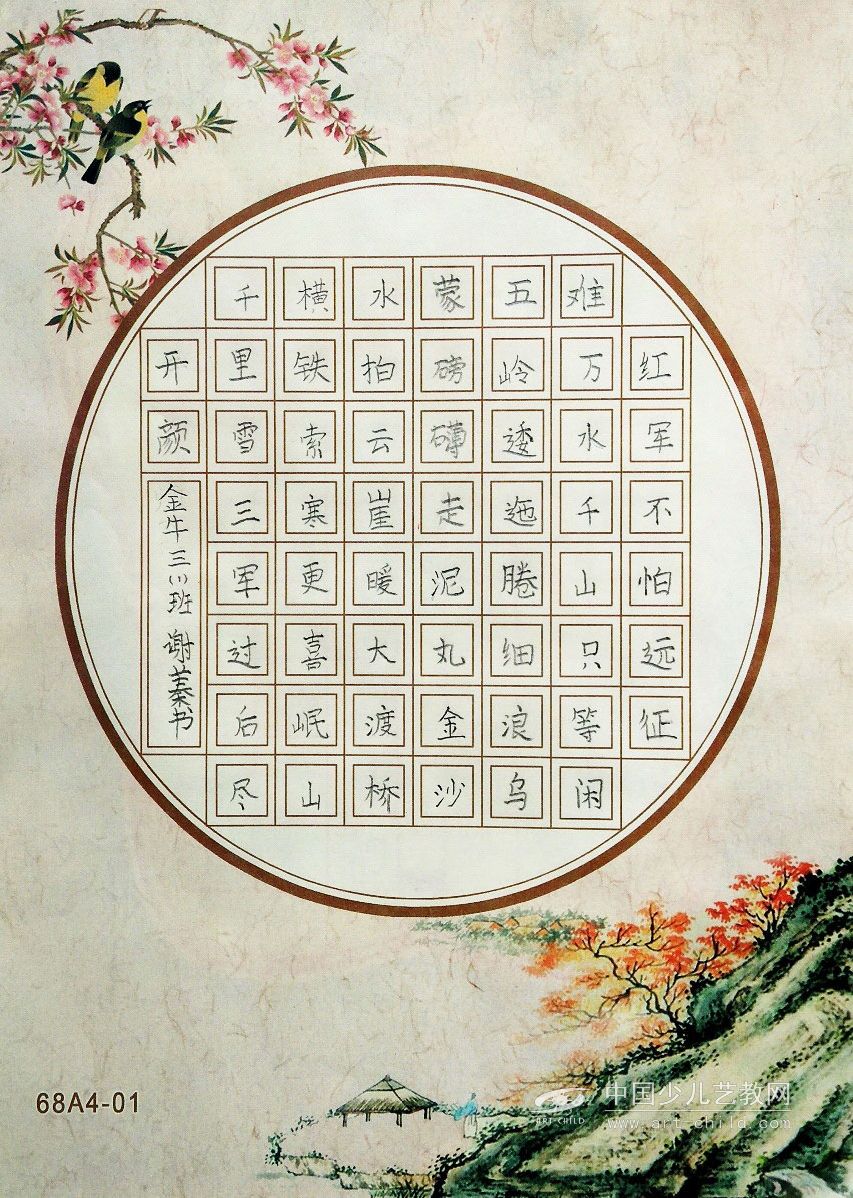 红军不怕远征
难万水千山只等闲
五岭逶迤腾细浪乌
蒙磅礴走泥丸金沙
水拍云崖暖大渡桥
横铁索寒更喜岷山
千里雪三军过后尽
开颜
金牛三(1)班 谢蓁书
68A4-01
中国少儿艺教网
ART CHILD
www.art-child.com